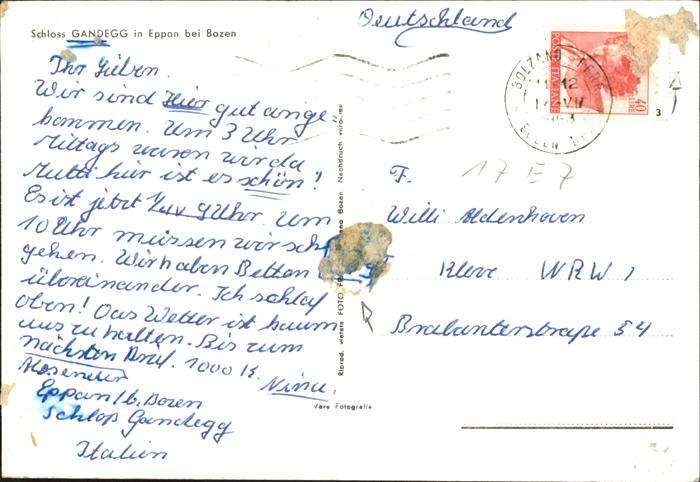 Schloss GANDEGG in Eppan bei Bozen
Deutschland
Ihr Lieben.
Wir sind hier gut ange
kommen. Um 3 Uhr
Mittags waren wir da
Mutti hier ist es schön!
Es ist jetzt 9 Uhr. Um
10 Uhr müssen wir
gehen. Wir haben Betten
übereinander. Ich schlaf
oben! Das Wetter ist kaum
auszuhalten. Bis zum
nächsten Brief. 1000 K.
Nina.
Absender
Eppan/b. Bozen
Schloß Gandegg
Italien
POSTE ITALIANE
40
BOLZANO
BOZEN
3
17 E 7
F.
Willi Aldenhoven
Kleve NRW 1
Brabanterstraße 54
Bozen Nachdruck verboten
Riprod. vietata FOTO
Vera Fotografia